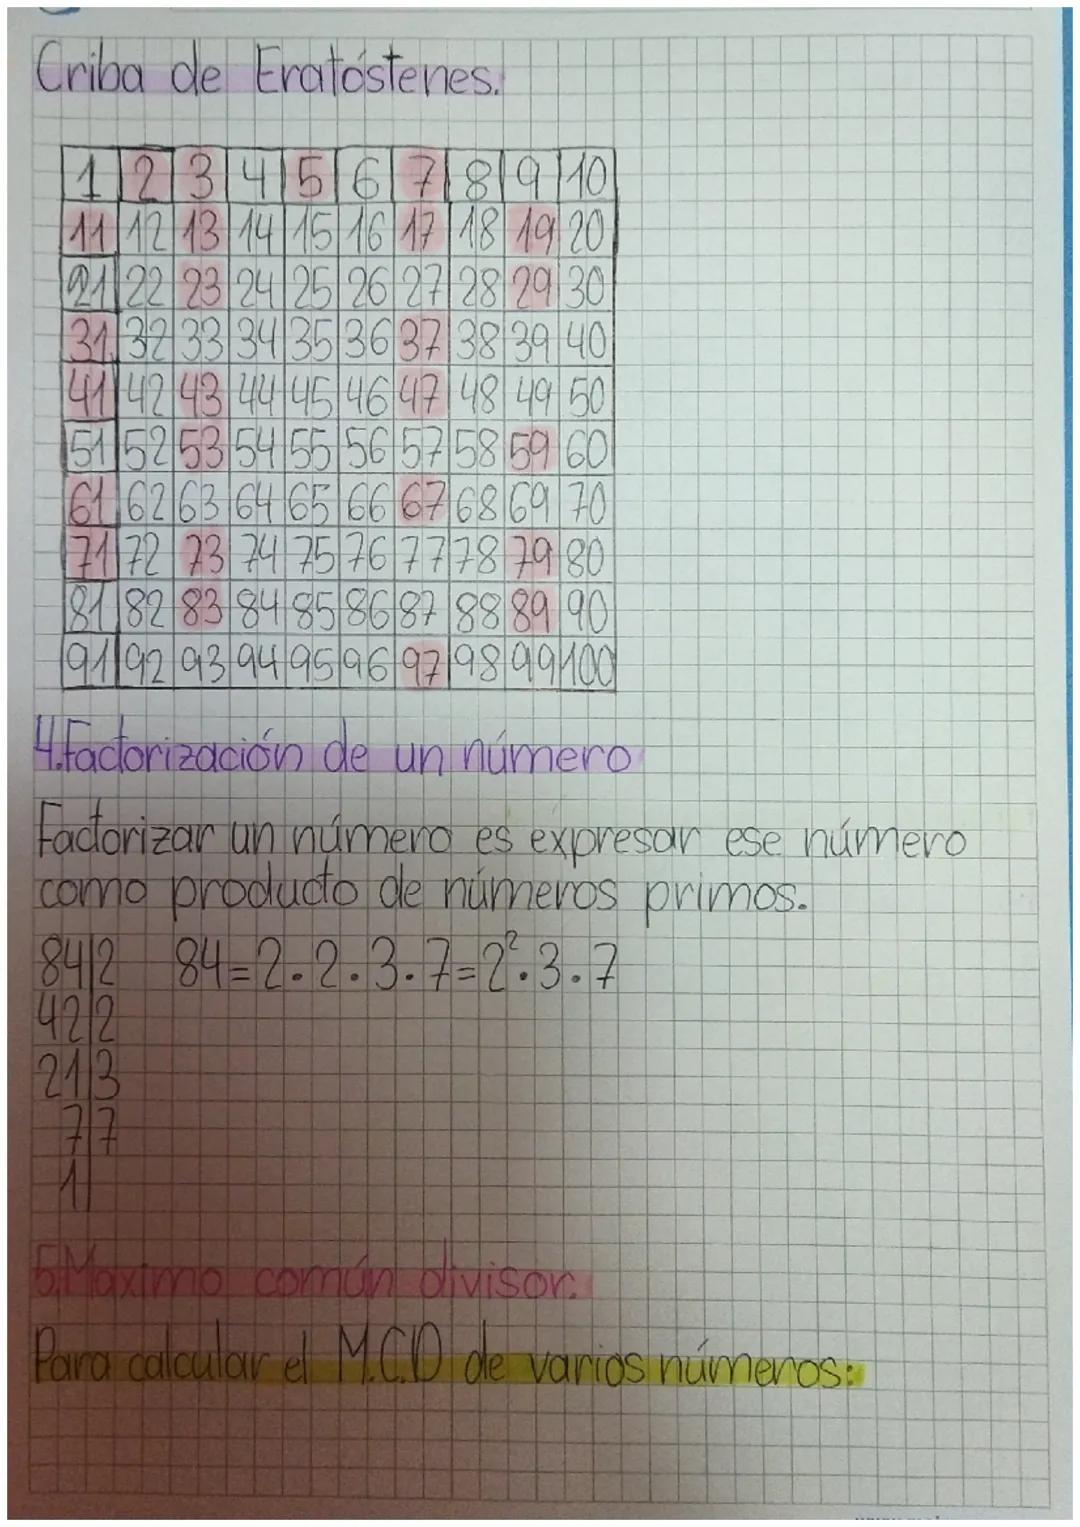 Criba de Eratóstenes.
1 2 3 4 5 6 7 8 9 10
11 12 13 14 15 16 17 18 19 20
21 22 23 24 25 26 27 28 29 30
31 32 33 34 35 36 37 38 39 40
41 42 43 44 45 46 47 48 49 50
51 52 53 54 55 56 57 58 59 60
61 62 63 64 65 66 67 68 69 70
71 72 73 74 75 76 77 78 79 80
81 82 83 84 85 86 87 88 89 90
91 92 93 94 95 96 97 98 99 100
4.Factorización de un número
Factorizar un número es expresar ese número
como producto de números primos.
84|2 84=2·2·3·7=2²·3·7
42|2
21|3
7|7
1|
5.Maximo común divisor.
Para calcular el M.C.D de varios números: